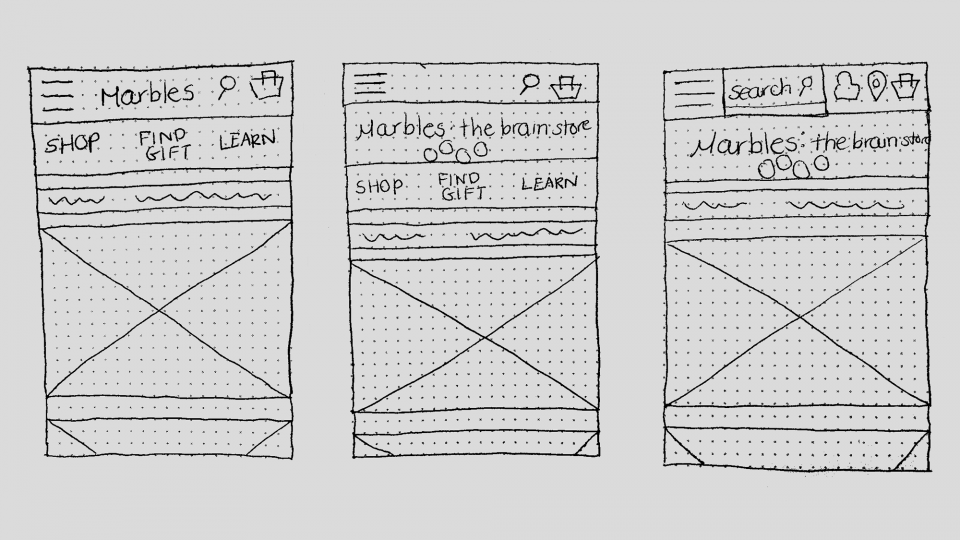 Marbles
SHOP FIND GIFT LEARN
Marbles: the brain store
SHOP FIND GIFT LEARN
search
Marbles: the brain store